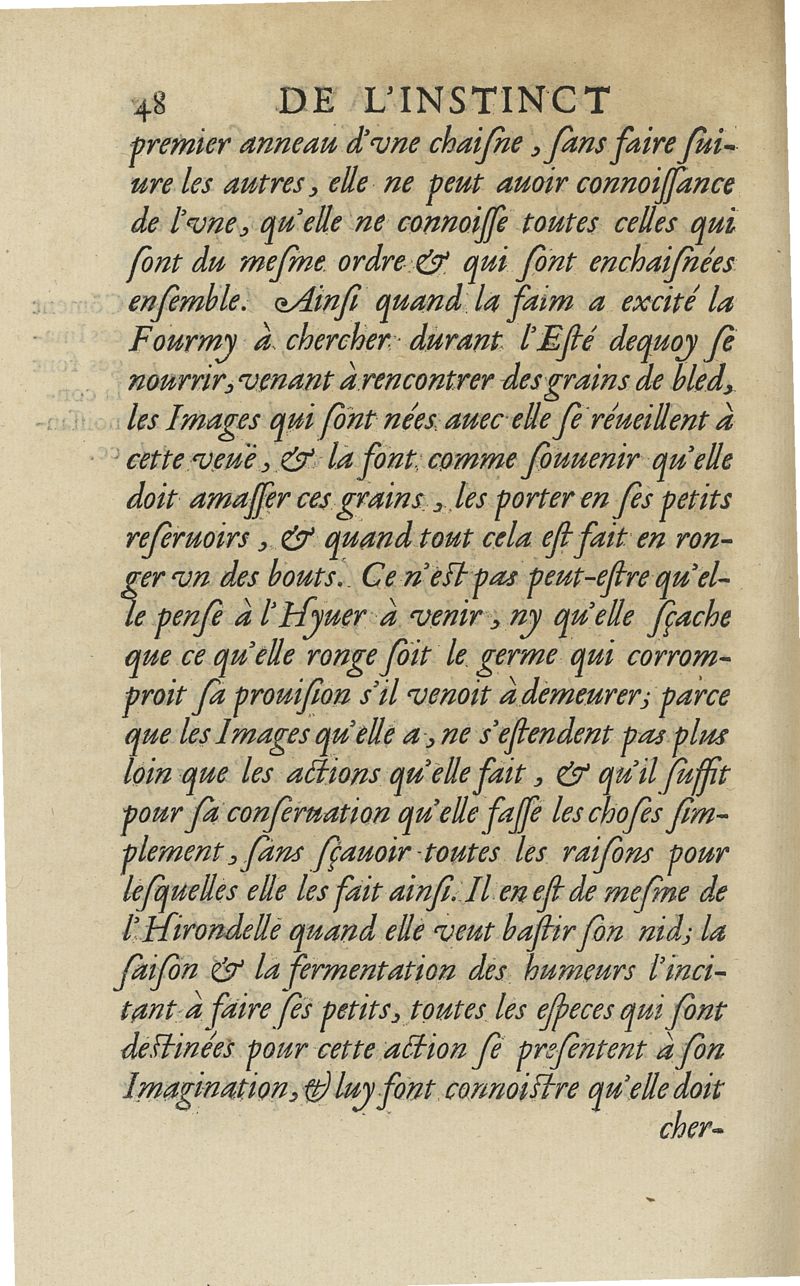 48 DE L'INSTINCT
premier anneau d'vne chaiſne, ſans faire ſui-
ure les autres, elle ne peut auoir connoiſſance
de l'vne, qu'elle ne connoiſſe toutes celles qui
ſont du meſme ordre & qui ſont enchaiſnées
enſemble. Ainſi quand la faim a excité la
Fourmy à chercher durant l'Eſté dequoy ſe
nourrir, venant à rencontrer des grains de bled,
les Images qui ſont nées auec elle ſe réueillent à
cette veuë, & la font comme ſouuenir qu'elle
doit amaſſer ces grains, les porter en ſes petits
reſeruoirs, & quand tout cela eſt fait en ron-
ger vn des bouts. Ce n'eſt pas peut-eſtre qu'el-
le penſe à l'Hyuer à venir, ny qu'elle ſçache
que ce qu'elle ronge ſoit le germe qui corrom-
proit ſa prouiſion s'il venoit à demeurer; parce
que les Images qu'elle a, ne s'eſtendent pas plus
loin que les actions qu'elle fait, & qu'il ſuffit
pour ſa conſeruation qu'elle faſſe les choſes ſim-
plement, ſans ſçauoir toutes les raiſons pour
leſquelles elle les fait ainſi. Il en eſt de meſme de
l'Hirondelle quand elle veut baſtir ſon nid; la
ſaiſon & la fermentation des humeurs l'inci-
tant à faire ſes petits, toutes les eſpeces qui ſont
deſtinées pour cette action ſe preſentent à ſon
Imagination, & luy font connoiſtre qu'elle doit
cher-